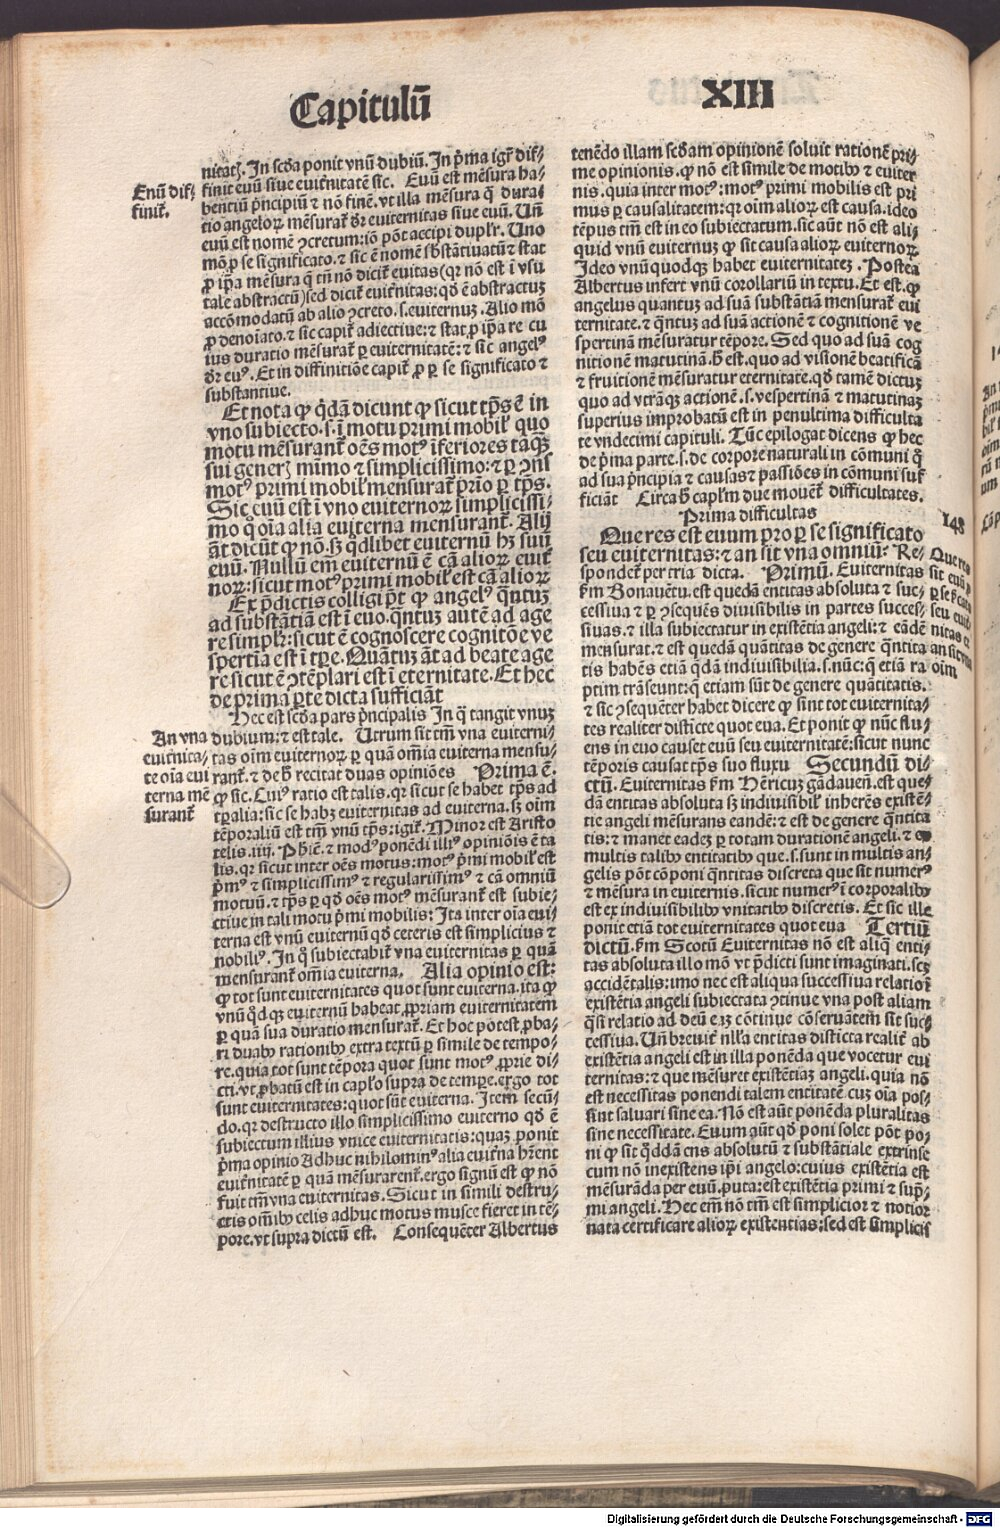 Capitulū
XIII
Euū dif⸗
finit᷑.
nitatꝫ. In scḋa ponit vnū dubiū. In p̄ma igr̄ dif⸗
finit euū siue euit᷑nitatē sic. Euū est mēsura ha⸗
bentiū p̄ncipiū ⁊ nō finē. vt illa mēsura q̄ dura⸗
tio angeloꝝ mēsurat᷑ dr̄ euiternitas siue euū. Un̄
euū est nomē ꝯcretum: iō pōt accipi duplr̄. Uno
mō ꝓ se significato. ⁊ sic ē nomē sb̄stātiuatū ⁊ stat
ꝓ ip̄a mēsura q̄ tn̄ nō dicit᷑ euitas (qꝛ nō est ī vsu
tale abstractū) sed dicit᷑ euit᷑nitas: qḋ ē abstractuꝫ
accōmodatū ab alio ꝯcreto. s. euiternuꝫ. Alio mō
ꝓ denoīato. ⁊ sic capit᷑ adiectiue: ⁊ stat ꝓ ip̄a re cu
ius duratio mēsurat᷑ ꝑ euiternitatē: ⁊ sic angelꝰ
dr̄ euꝰ. Et in diffinitiōe capit᷑ ꝓ ꝑ se significato ⁊
substantiue.
Et nota ꝙ q̇dā dicunt ꝙ sicut tp̄s ē in
vno subiecto. s. ī motu primi mobil᷑ quo
motu mēsurant᷑ oēs motꝰ īferiores taq̄ꝫ
sui generꝫ mīmo ⁊ simplicissimo: ⁊ ꝑ ꝯn̄s
motꝰ primi mobil᷑ mensurat᷑ prīo ꝑ tp̄s.
Sic euū est ī vno euiternoꝝ simplicissi⸗
mo q̊ oīa alia euiterna mensurant᷑. Alij
āt dicūt ꝙ nō. sꝫ q̇dlibet euiternū hꝫ suū
euū. Nullū em̄ euiternū ē cā alioꝝ euit᷑
noꝝ: sicut motꝰ primi mobil᷑ est cā alioꝝ
Ex p̄dictis colligi p̄t ꝙ angelꝰ q̄ntuꝫ
ad substātiā est ī euo. q̄ntuꝫ autē ad age
re simplr̄: sicut ē cognoscere cognitōe ve
spertīa est ī tꝑe. Quātuꝫ āt ad beate age
re sicut ē ꝯtēplari est ī eternitate. Et hec
de prima ꝑte dicta sufficiāt
Hec est scḋa pars p̄ncipalis In q̄ tangit vnuꝫ
An vna
euit᷑nita⸗
te oīa eui
terna mē
surant᷑
dubium: ⁊ est tale. Utrum sit tm̄ vna euiterni⸗
tas oīm euiternoꝝ ꝑ quā om̄ia euiterna mensu⸗
rant᷑. ⁊ de h̄ recitat duas opiniōes Prima ē.
ꝙ sic. Cuiꝰ ratio est talis. qꝛ sicut se habet tp̄s ad
tꝑalia: sic se habꝫ euiternitas ad euiterna. sꝫ oīm
tēporaliū est tm̄ vnū tp̄s: igit᷑. Minor est Aristo
telis. iiij. Phiē. ⁊ modꝰ ponēdi illiꝰ opiniōis ē ta
lis. qꝛ sicut inter oēs motus: motꝰ p̄mi mobil᷑ est
p̄mꝰ ⁊ simplicissimꝰ ⁊ regularissimꝰ ⁊ cā omniū
motuū. ⁊ tp̄s ꝑ qḋ oēs motꝰ mēsurant᷑ est subie⸗
ctiue in tali motu p̄mi mobilis: Ita inter oīa eui⸗
terna est vnū euiternū qḋ ceteris est simplicius ⁊
nobiliꝰ. In q̊ subiectabit᷑ vna euiternitas ꝑ quā
mensurant᷑ om̄ia euiterna. Alia opinio est:
ꝙ tot sunt euiternitates quot sunt euiterna. ita ꝙ
vnū q̇dqꝫ euiternū habeat ꝓpriam euiternitatem
ꝑ quā sua duratio mensurat᷑. Et hoc pōtest ꝓba⸗
ri duabꝰ rationibꝰ extra textū ꝑ simile de tempo⸗
re. quia tot sunt tēpora quot sunt motꝰ ꝓprie di⸗
cti. vt ꝓbatū est in caplo supra de tempore. ergo tot
sunt euiternitates: quot sūt euiterna. Item secū⸗
do. qꝛ destructo illo simplicissimo euiterno qḋ ē
subiectum illius vnice euiternitatis: quaꝫ ponit
p̄ma opinio Adhuc nihilominꝰ alia euit᷑na hr̄ent
euit᷑nitatē ꝑ quā mēsurarent᷑. ergo signū est ꝙ nō
fuit tm̄ vna euiternitas. Sicut in simili destru⸗
ctis om̄ibꝰ celis adhuc motus musce fieret in tē⸗
pore. vt supra dictū est. Consequēter Albertus
tenēdo illam scḋam opinionē soluit rationē pri⸗
me opinionis. ꝙ nō est simile de motibꝰ ⁊ euiter
nis. quia inter motꝰ: motꝰ primi mobilis est pri
mus ꝑ causalitatem: qꝛ oīm alioꝝ est causa. ideo
tēpus tm̄ est in eo subiectatum. sic aūt nō est ali⸗
quid vnū euiternuꝫ ꝙ sit causa alioꝝ euiternoꝝ.
Ideo vnū quodqꝫ habet euiternitateꝫ. Postea
Albertus infert vnū corollariū in textu. Et est. ꝙ
angelus quantuꝫ ad suā substātiā mensurat᷑ eui
ternitate. ⁊ q̄ntuꝫ ad suā actionē ⁊ cognitionē ve
spertinā mēsuratur tēpore. Sed quo ad suā cog
nitionē matutinā. h̄ est. quo ad visionē beatificā
⁊ fruitionē mēsuratur eternitate. qḋ tamē dictuꝫ
quo ad vtrāqꝫ actionē. s. vespertinā ⁊ matutinaꝫ
superius improbatū est in penultima difficulta
te vndecimi capituli. Tūc epilogat dicens ꝙ hec
de p̄ma parte. s. de corpore naturali in cōmuni q̄
ad sua p̄ncipia ⁊ causas ⁊ passiōes in cōmuni suf
ficiāt Circa h̄ caplm̄ due mouēt᷑ difficultates.
Prima difficultas
148
Que res est euum pro ꝑ se significato
seu euiternitas: ⁊ an sit vna omniū. Re⸗
spondet᷑ per tria dicta. Primū. Euiternitas
fm̄ Bonauētu. est quedā entitas absoluta ⁊ suc⸗
cessiua ⁊ ꝑ ꝯsequēs diuisibilis in partes succes⸗
siuas. ⁊ illa subiectatur in existētia angeli: ⁊ eādē
mensurat. ⁊ est quedā quātitas de genere q̄ntita
tis habēs etiā q̇dā indiuisibilia. s. nūc: q̄ etiā ra
ptim trāseunt: q̄ etiam sūt de genere quātitatis.
⁊ sic ꝯsequēter habet dicere ꝙ sint tot euiternita⸗
tes realiter distīcte quot eua. Et ponit ꝙ nūc flu⸗
ens in euo causet euū seu euiternitatē: sicut nunc
tēporis causat tp̄s suo fluxu Secundū di⸗
ctū. Euiternitas fm̄ Hēricuꝫ gādauen̄. est que⸗
dā entitas absoluta sꝫ indiuisibil᷑ inherēs existē⸗
tie angeli mēsurans eandē: ⁊ est de genere q̄ntita
tis: ⁊ manet eadeꝫ ꝑ totam durationē angeli. ⁊ ex
multis talibꝰ entitatibꝰ que. s. sunt in multis an⸗
gelis pōt cōponi q̄ntitas discreta que sit numerꝰ
⁊ mēsura in euiternis. sicut numerꝰ ī corporalibꝰ
est ex indiuisibilibꝰ vnitatibꝰ discretis. Et sic ille
ponit etiā tot euiternitates quot eua Tertiū
dictū. fm̄ Scotū Euiternitas nō est aliq̄ enti⸗
tas absoluta illo mō vt p̄dicti sunt imaginati. scꝫ
accidētalis: imo nec est aliqua successiua relatio
existētia angeli subiectata ꝯtinue vna post aliam
q̄si relatio ad deū eūꝫ cōtinue cōseruātem sit suc⸗
cessiua. Un̄ breuit᷑ nll̄a entitas distīcta realit᷑ ab
existētia angeli est in illa ponēda que vocetur eui
ternitas: ⁊ que mēsuret existētiaꝫ angeli. quia nō
est necessitas ponendi talem entitatē cuꝫ oīa pos⸗
sint saluari sine ea. Nō est aūt ponēda pluralitas
sine necessitate. Euum aūt qḋ poni solet pōt po⸗
ni ꝙ sit q̇ddā ens absolutū ⁊ substātiale extrinse
cum nō inexistens ip̄i angelo: cuius existētia est
mēsurāda per euū. puta: est existētia primi ⁊ sup̄⸗
mi angeli. Hec em̄ nō tm̄ est simplicior ⁊ notior
nata certificare alioꝝ existentias: sed est simplicis
Que res
sit euū p
ꝑ se sig̃
cato
seu euit᷑
nitas ⁊
an sit vna
oīm
Digitalisierung gefördert durch die Deutsche Forschungsgemeinschaft - DFG